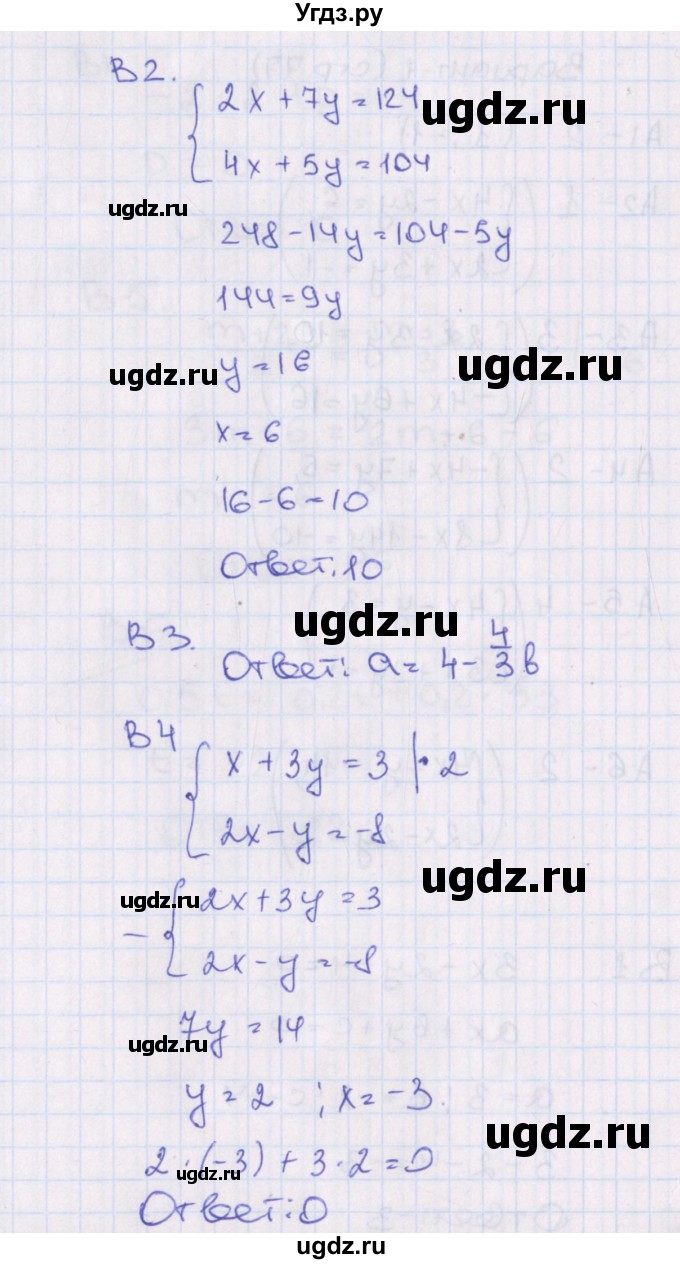 Угдз.ру
В2.
2x + 7y = 124
ugdz.ru
4x + 5y = 104
ugdz.ru
248 - 14y = 104 - 5y
144 = 9y
ugdz.ru
y = 16
ugdz.ru
x = 6
16 - 6 = 10
Ответ: 10
ugdz.ru
В 3.
Ответ: a = 4 - 4/3 b
В4
x + 3y = 3 | · 2
2x - y = -8
ugdz.ru
ugdz.ru
2x + 3y = 3
- 2x - y = -8
7y = 14
ugdz.ru
y = 2 ; x = -3.
ugdz.ru
2 · (-3) + 3 · 2 = 0
ugdz.ru
Ответ: 0
ugdz.ru